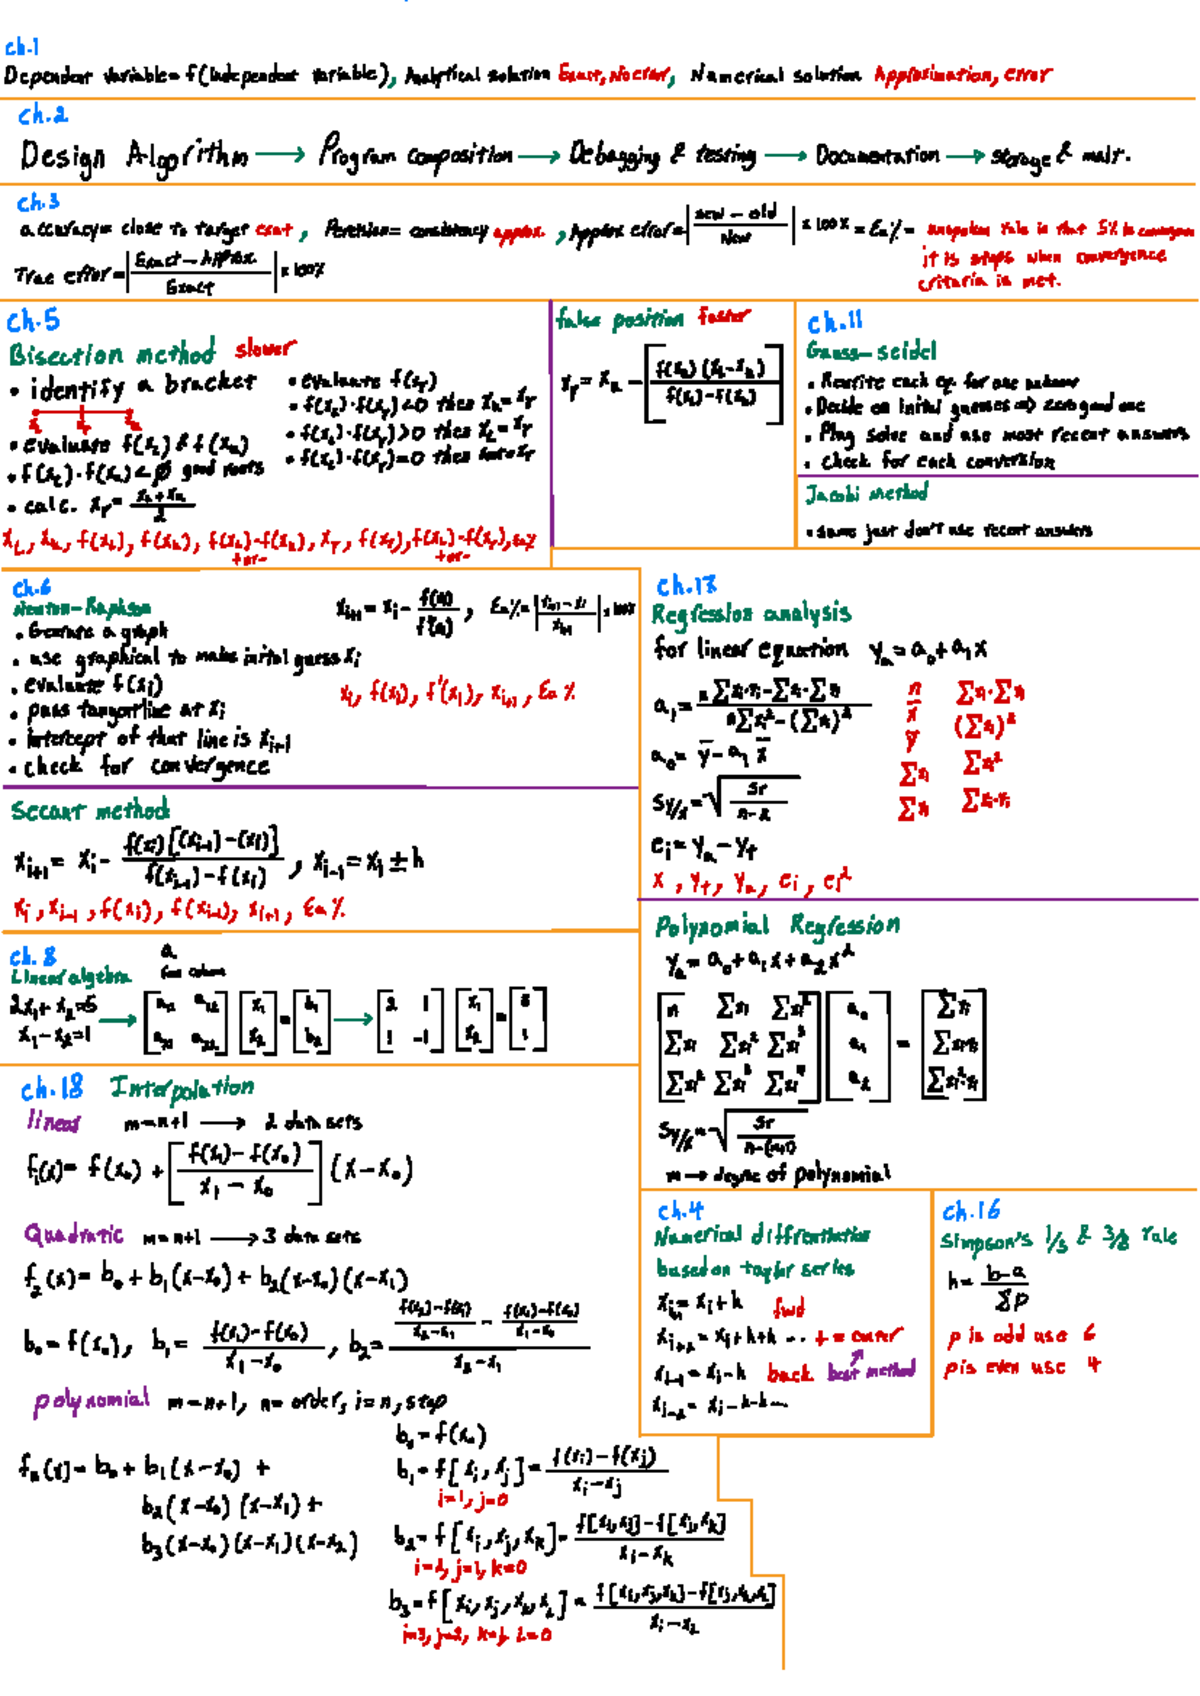 ch.1
Dependent variable= f(independent variable), Analytical solution Exact, No error, Numerical solution Approximation, error
ch.2
Design Algorithm → Program composition → Debagging & testing → Documentation → storage &
ch.3
accuracy= close to target exat, = consistency approx., Approx error=|new-old / New| x 100% = Ea% = rule is that 5%
it is stops when convergence
criteria is met.
True error=|Exact-Approx. / Exact| x 100%
ch.5
Bisection method slower
• identify a bracket
xL xr xu
• evaluate f(xL) & f(xu)
• f(xL)·f(xu)<0 good roots
• calc. xr= (xL+xu)/2
• evaluate f(xr)
• f(xL)·f(xr)<0 then xu=xr
• f(xL)·f(xr)>0 then xL=xr
• f(xL)·f(xr)=0 then
xL, xu, f(xL), f(xu), f(xL)·f(xu), xr, f(xr), f(xL)·f(xr), Ea%
+or- +or-
false position faster
xr = xu - [f(xu)(xL-xu) / f(xL)-f(xu)]
ch.11
Gauss-seidel
• Rewrite each eq. for one unknow
• Decide on inital guesses => zero good one
• Plug solve and use most recent answers
• check for each conversion
Jacobi Method
• same just don't use recent answers
ch.6
Newton-Raphson
• Generate a graph
• use graphical to make inital guess xi
• evaluate f(xi)
• pass tangent line at xi
• intercept of that line is xi+1
• check for convergence
xi+1 = xi - f(xi)/f'(xi), Ea%=|xi+1-xi / xi+1| x 100%
xi, f(xi), f'(xi), xi+1, Ea%
Secant method
xi+1 = xi - f(xi)[(xi-1)-(xi)] / f(xi-1)-f(xi), xi-1=xi±h
xi, xi-1, f(xi), f(xi-1), xi+1, Ea%
ch.8
Linear algebra
a
row column
2x1+x2=5
x1-x2=1
→ [a11 a12 a21 a22] [x1 x2] = [b1 b2] → [2 1 1 -1] [x1 x2] = [5 1]
ch.17
Regression analysis
for linear equation ya=a0+a1x
a1= n∑xi·yi-∑xi·∑yi / n∑xi²-(∑xi)²
a0= ȳ-a1 x̄
Sy/x=√(Sr / n-2)
ei=ya-yt
x, yt, ya, ei, ei²
n ∑xi·∑yi
x̄ (∑xi)²
ȳ ∑xi²
∑xi ∑xi·yi
∑yi
Polynomial Regression
ya=a0+a1x+a2x²
[n ∑xi ∑xi²] [a0] [∑yi]
[∑xi ∑xi² ∑xi³] [a1] = [∑xiyi]
[∑xi² ∑xi³ ∑xi⁴] [a2] [∑xi²yi]
Sy/x=√(Sr / n-(m+1))
m → degree of polynomial
ch.18 Interpolation
linear m=n+1 → 2 data sets
f1(x)= f(x0)+[f(x1)-f(x0) / x1-x0](x-x0)
Quadratic m=n+1 → 3 data sets
f2(x)= b0+b1(x-x0)+b2(x-x0)(x-x1)
b0=f(x0), b1= f(x1)-f(x0) / x1-x0, b2= (f(x2)-f(x1) / x2-x1 - f(x1)-f(x0) / x1-x0) / x2-x1
polynomial m=n+1, n= order, i=n, stop
fn(x)= b0+b1(x-x0)+
b2(x-x0)(x-x1)+
b3(x-x0)(x-x1)(x-x2)
b0=f(x0)
b1=f[xi,xj]= f(xi)-f(xj) / xi-xj
i=1, j=0
b2=f[xi,xj,xk]= f[xi,xj]-f[xj,xk] / xi-xk
i=2, j=1, k=0
b3=f[xi,xj,xk,xL]= f[xi,xj,xk]-f[xj,xk,xL] / xi-xL
i=3, j=2, k=1, L=0
ch.4
Numerical diffrentiation
based on taylor series
xi+1= xi+h fwd
xi+2= xi+h+h ... += center
xi-1= xi-h back best method
xi-2= xi-h-h...
ch.16
Simpson's 1/3 & 3/8 rule
h= b-a / ∑p
p is odd use 6
p is even use 4